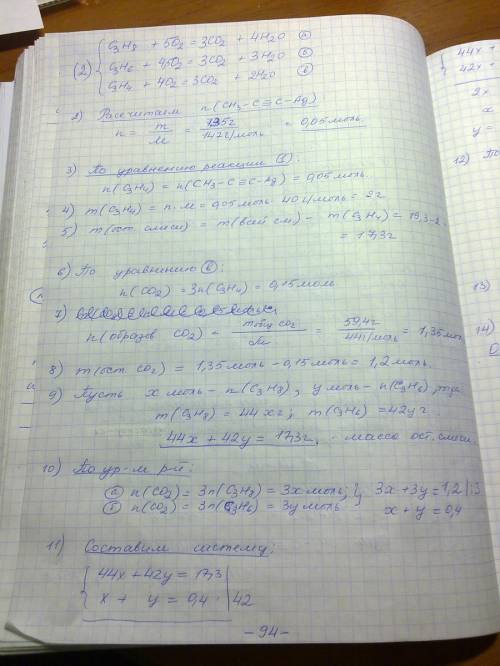 (2) { C3H8 + 5O2 = 3CO2 + 4H2O (а)
C3H6 + 4,5O2 = 3CO2 + 3H2O (б)
C3H4 + 4O2 = 3CO2 + 2H2O (в)
2) Рассчитаем n(CH3-C≡C-Ag)
n = m/M = 7,35г / 147г/моль = 0,05моль
3) По уравнению реакции (1):
n(C3H4) = n(CH3-C≡C-Ag) = 0,05моль.
4) m(C3H4) = n·M = 0,05моль·40г/моль = 2г
5) m(ост. смеси) = m(всей см) - m(C3H4) = 19,3-2
= 17,3г
6) По уравнению (в):
n(CO2) = 3n(C3H4) = 0,15моль
7)
n(образов CO2) = mобщ CO2 / M = 59,4г / 44г/моль = 1,35моль
8) m(ост CO2) = 1,35моль - 0,15моль = 1,2моль.
9) Пусть x моль - n(C3H8), y моль - n(C3H6), тогда
m(C3H8) = 44xг; m(C3H6) = 42yг.
44x + 42y = 17,3г. - масса ост. смеси
10) По ур-м р-й:
(а) n(CO2) = 3n(C3H8) = 3x моль; } 3x + 3y = 1,2 |:3
(б) n(CO2) = 3n(C3H6) = 3y моль x + y = 0,4
11) Составим систему:
{ 44x + 42y = 17,3
x + y = 0,4 · | 42
-94-
44x +
42x +
2x
x
y =
12) По
13)
14)